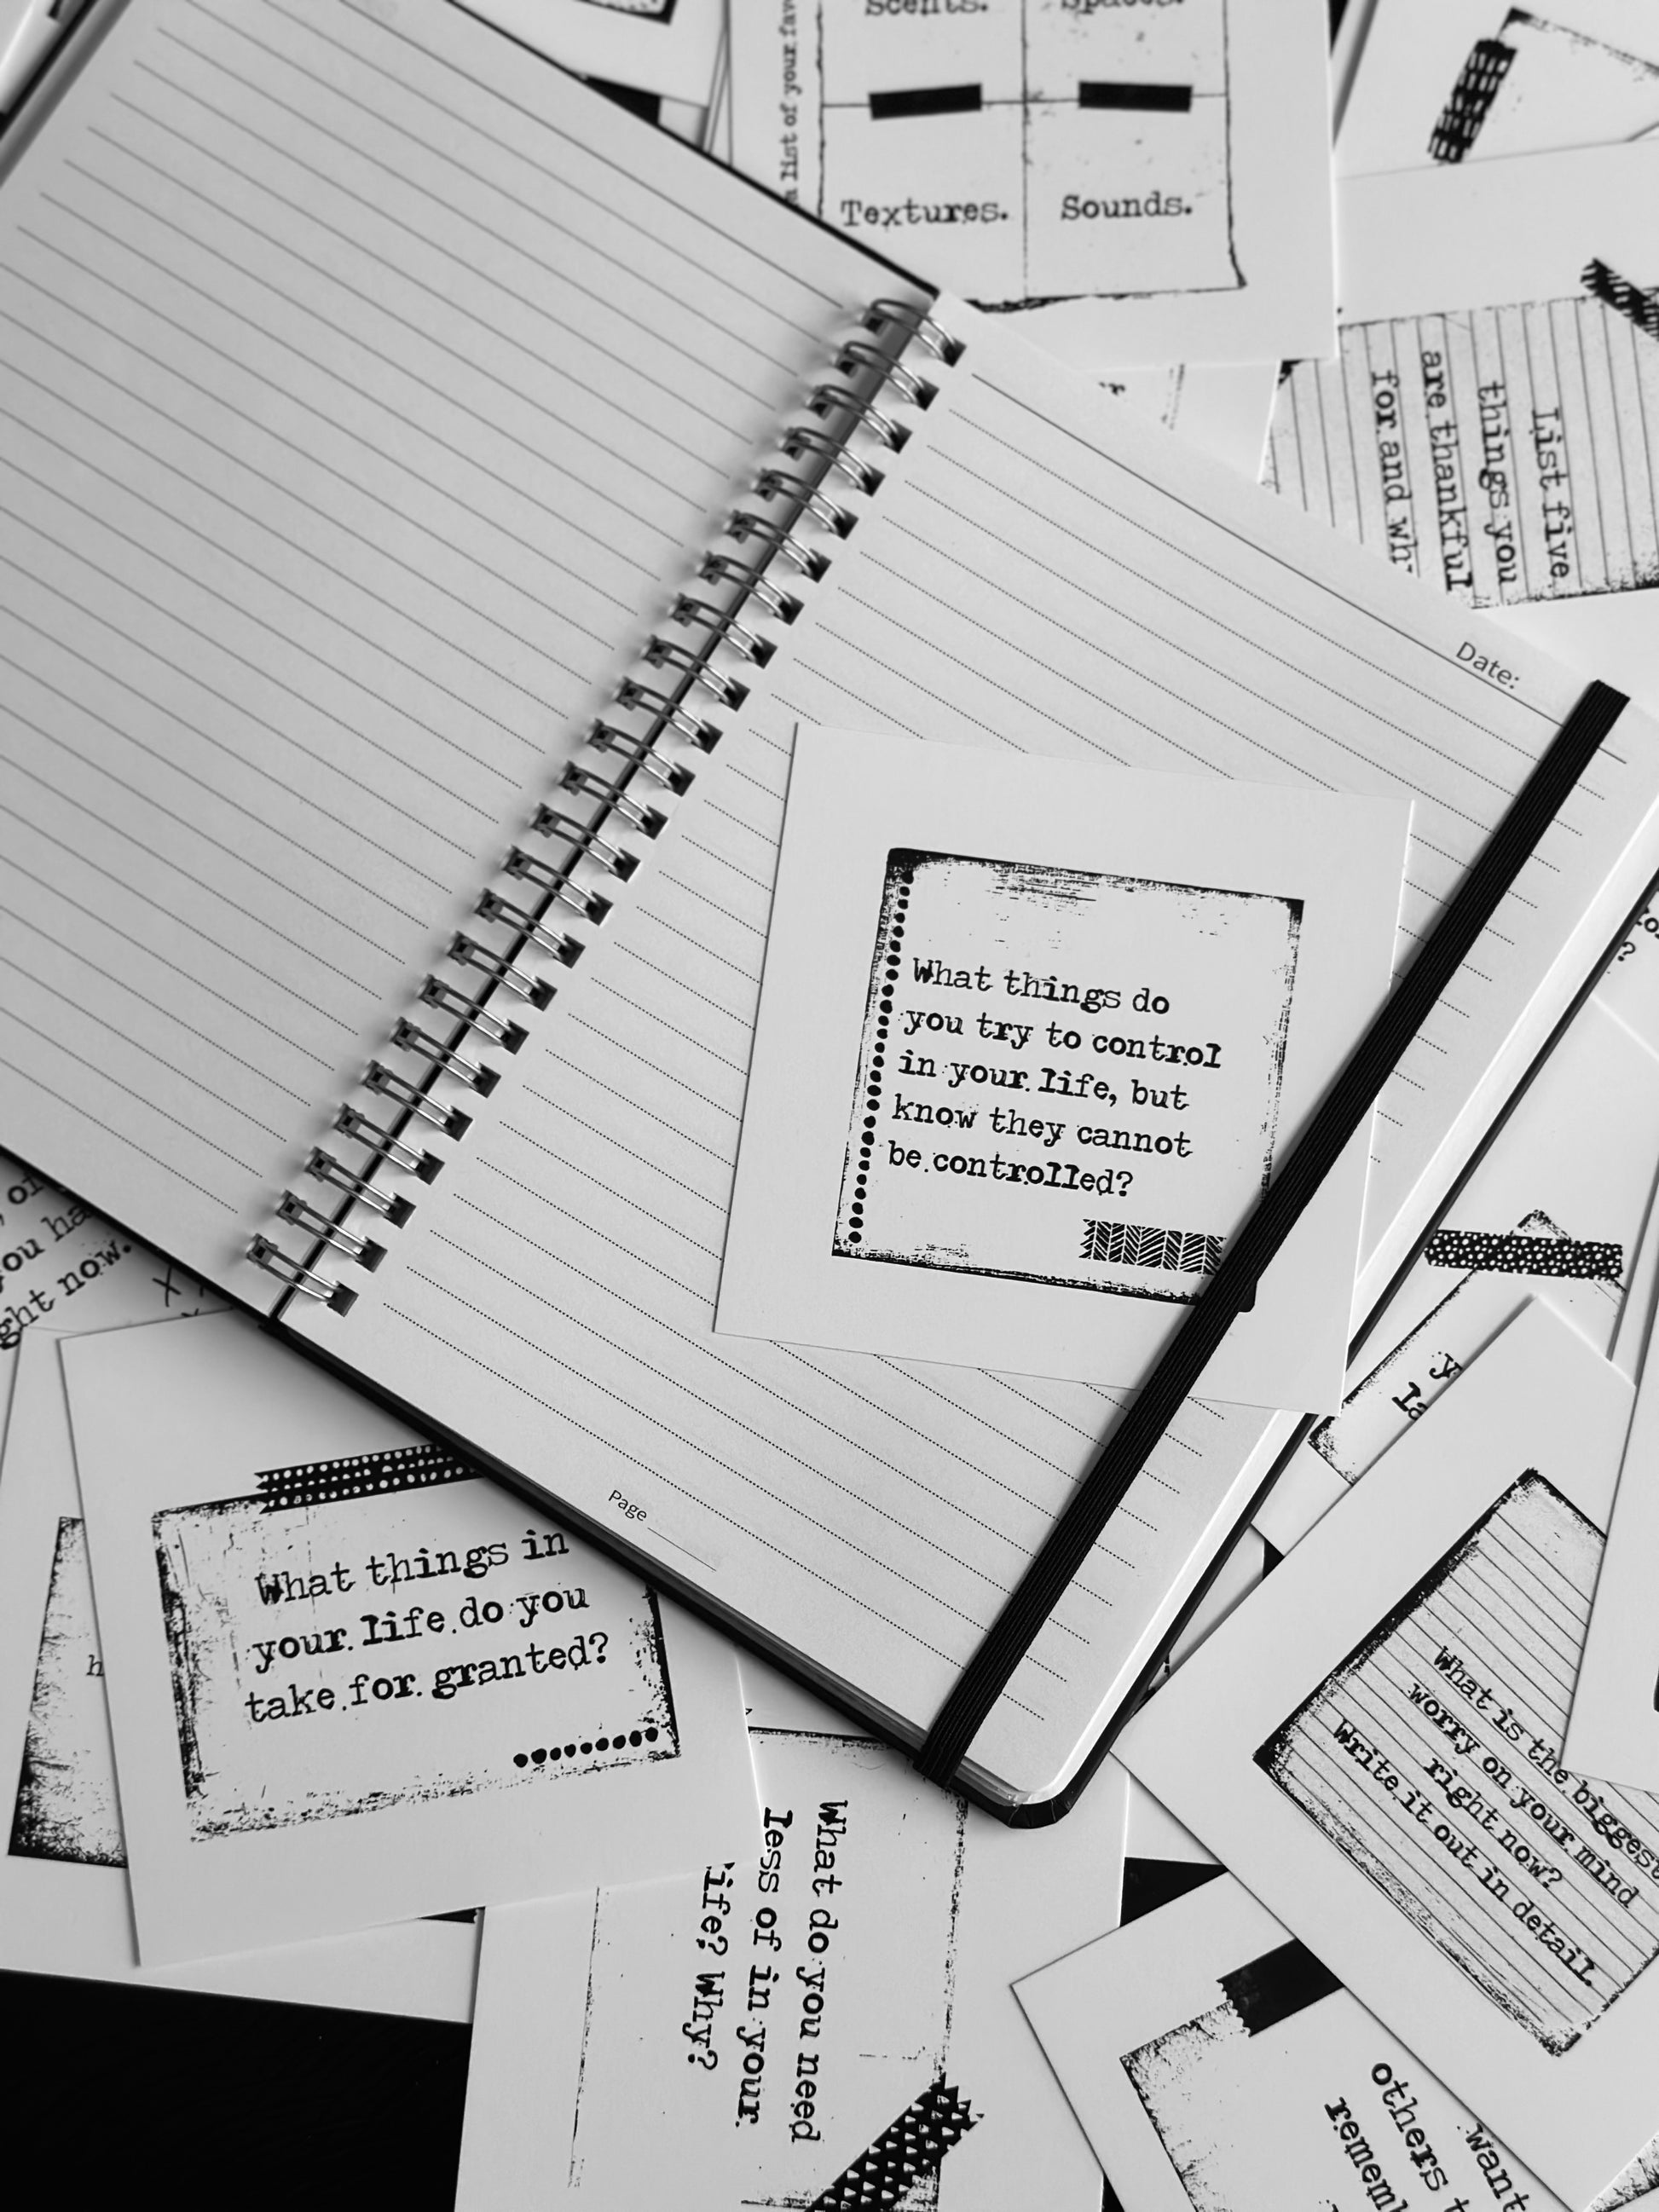 Scents.
Spaces.
a list of your fav
Textures.
Sounds.
List five
things you
are thankful
for and why
Date:
What things do
you try to control
in your life, but
know they cannot
be controlled?
ou ha
ght now.
Page
What things in
your life do you
take for granted?
What do you need
less of in your
life? Why?
What is the biggest
worry on your mind
right now?
Write it out in detail.
want
others